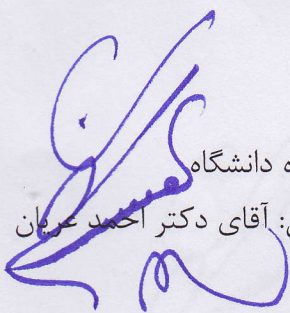 ه دانشگاه
: آقای دکتر احمد عریان